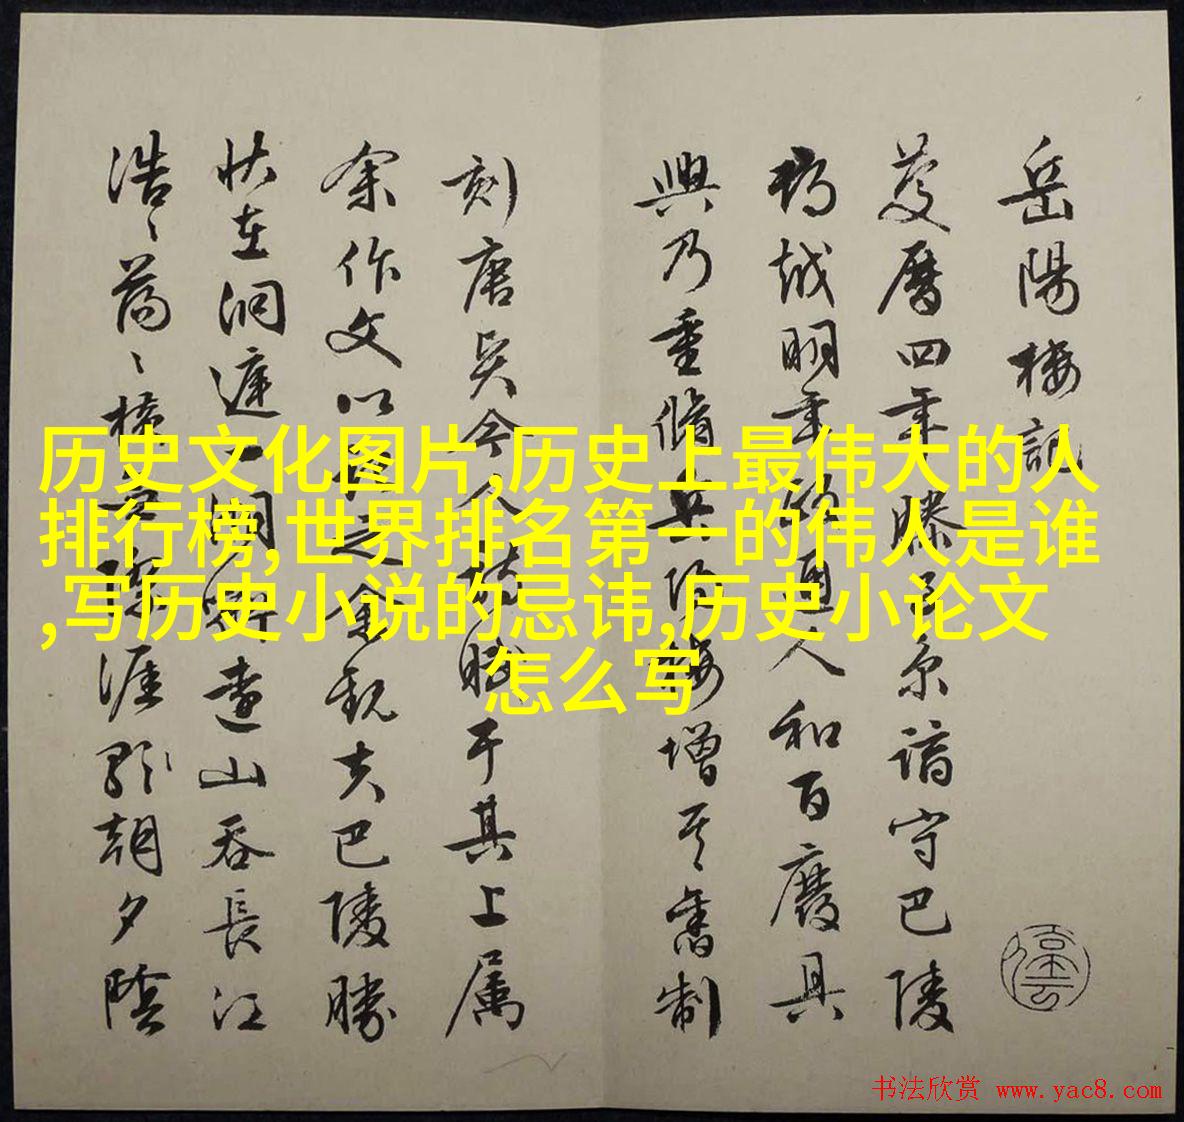 岳陽樓記
慶曆四年滕子京謫守巴陵
郡越明年政通人和百廢具
興乃重脩岳陽樓增其舊制
刻唐賢今人詩賦于其上属
余作文以記之余觀夫巴陵勝
狀在洞庭一湖銜遠山吞長江
浩々蕩々橫無際涯朝夕陰
历史文化图片,历史上最伟大的人
排行榜,世界排名第一的伟人是谁
,写历史小说的忌讳,历史小论文
怎么写
书法欣赏 www.yac8.com